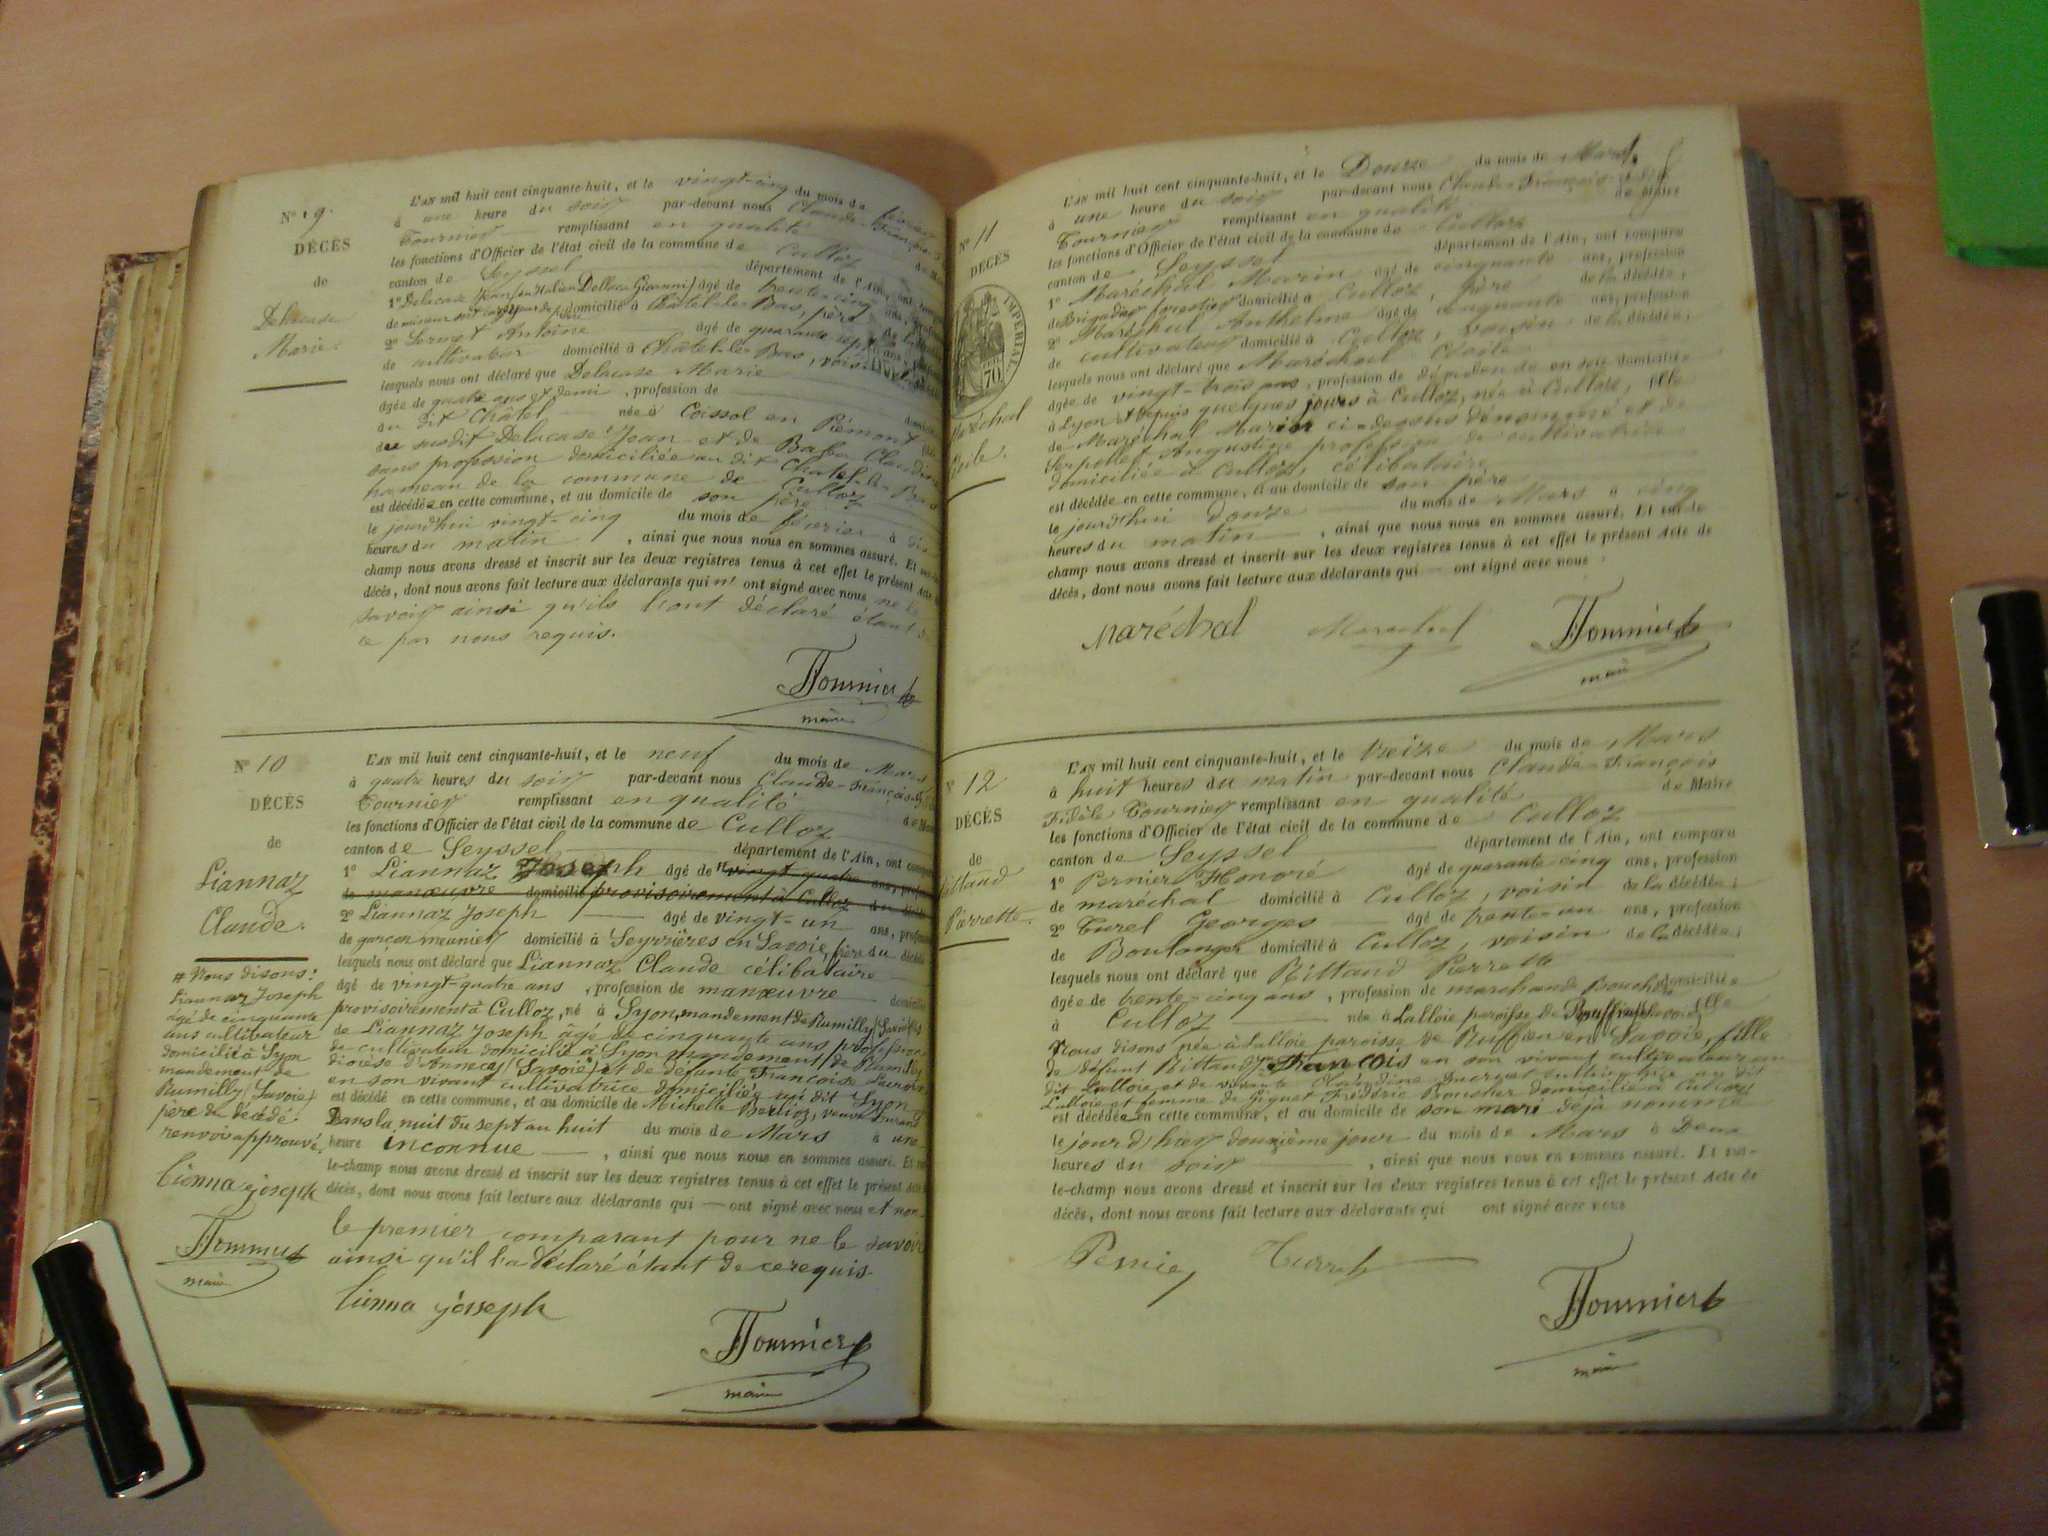 N° 9.
DÉCÈS
de
Delacase
Marie.
L'AN mil huit cent cinquante-huit, et le vingt-cinq du mois de février
à une heure du soir par-devant nous Claude-François
Tournier remplissant en qualité de
les fonctions d'Officier de l'état civil de la commune de Culloz
canton de Seyssel département de l'Ain, ont
1° Delacase Jean (en Italien Dellaca Gioanni) âgé de trente-cinq ans,
de mineur domicilié à Châtel-le-Bas, père
2° Sornet Antoine âgé de quarante-sept ans,
de cultivateur domicilié à Châtel-le-Bas, voisin
lesquels nous ont déclaré que Delacase Marie
âgée de quatre ans et demi, profession de
au dit Châtel née à Coissol en Piémont
du susdit Delacase Jean et de Claudine
sans profession domiciliée au dit Châtel-le-Bas
hameau de la commune de Culloz
est décédée en cette commune, et au domicile de son père
le jourd'hui vingt-cinq du mois de février à dix
heures du matin, ainsi que nous nous en sommes assuré. Et sur-le-
champ nous avons dressé et inscrit sur les deux registres tenus à cet effet le présent Acte
décès, dont nous avons fait lecture aux déclarants qui n' ont signé avec nous ne le
savoir ainsi qu'ils l'ont déclaré étant de
ce par nous requis.
Tournier
maire
N° 10
DÉCÈS
de
Liannaz
Claude.
L'AN mil huit cent cinquante-huit, et le neuf du mois de Mars
à quatre heures du soir par-devant nous Claude-François
Tournier remplissant en qualité de Maire
les fonctions d'Officier de l'état civil de la commune de Culloz
canton de Seyssel département de l'Ain, ont comparu
1° Liannaz Joseph âgé de # vingt-quatre ans,
de manœuvre domicilié provisoirement à Culloz du
2° Liannaz Joseph âgé de vingt-un ans, profession
de garçon meunier domicilié à Seyvrières en Savoie, frère du décédé
lesquels nous ont déclaré que Liannaz Claude célibataire
âgé de vingt-quatre ans, profession de manœuvre domicilié
provisoirement à Culloz, né à Syon, mandement de Rumilly (Savoie) fils
de Liannaz Joseph âgé de cinquante ans profession
de cultivateur domicilié à Syon mandement de Rumilly
diocèse d'Annecy (Savoie) et de défunte Françoise
en son vivant cultivatrice domiciliée au dit Syon
est décédé en cette commune, et au domicile de Michelle Berlioz, veuve
Dans la nuit du sept au huit du mois de Mars à une
heure inconnue, ainsi que nous nous en sommes assuré. Et sur-
le-champ nous avons dressé et inscrit sur les deux registres tenus à cet effet le présent Acte
décès, dont nous avons fait lecture aux déclarants qui ont signé avec nous et non
le premier comparant pour ne le savoir
ainsi qu'il l'a déclaré étant de ce requis.
Lionna joseph
Tournier
maire
# Nous disons:
Liannaz Joseph
âgé de cinquante
ans cultivateur
domicilié à Syon
mandement de
Rumilly (Savoie)
père du décédé
renvoi approuvé.
Lionna joseph
Tournier
maire
N° 11
DÉCÈS
IMPÉRIAL
70
Maréchal
Cécile.
L'AN mil huit cent cinquante-huit, et le Douze du mois de Mars
à une heure du soir par-devant nous Claude-François-Fidèle
Tournier remplissant en qualité de Maire
les fonctions d'Officier de l'état civil de la commune de Culloz
canton de Seyssel département de l'Ain, ont comparu
1° Maréchal Marin âgé de cinquante ans, profession
de Brigadier forestier domicilié à Culloz, père de la décédée;
2° Maréchal Anthelme âgé de cinquante ans, profession
de cultivateur domicilié à Culloz, voisin de la décédée;
lesquels nous ont déclaré que Maréchal Cécile
âgée de vingt-trois ans, profession de domiciliée
à Lyon et depuis quelques jours à Culloz, née à Culloz, fille
de Maréchal Marin ci-dessus dénommé et de
Serpollet Augustine profession de cultivatrice
domiciliée à Culloz, célibataire
est décédée en cette commune, et au domicile de son père
le jourd'hui douze du mois de Mars à cinq
heures du matin, ainsi que nous nous en sommes assuré. Et sur-le-
champ nous avons dressé et inscrit sur les deux registres tenus à cet effet le présent Acte de
décès, dont nous avons fait lecture aux déclarants qui ont signé avec nous
Maréchal Marechal Tournier
maire
N° 12
DÉCÈS
de
Rittaud
Pierrette.
L'AN mil huit cent cinquante-huit, et le treize du mois de Mars
à huit heures du matin par-devant nous Claude-François
Fidèle Tournier remplissant en qualité de Maire
les fonctions d'Officier de l'état civil de la commune de Culloz
canton de Seyssel département de l'Ain, ont comparu
1° Pernier Honoré âgé de quarante-cinq ans, profession
de maréchal domicilié à Culloz, voisin de la décédée;
2° Turel Georges âgé de trente-un ans, profession
de Boulanger domicilié à Culloz, voisin de la décédée;
lesquels nous ont déclaré que Rittaud Pierrette
âgée de trente-cinq ans, profession de marchande domiciliée
à Culloz née à Lalloie paroisse de fille
Nous disons née à Lalloie paroisse de Ruffieu en Savoie, fille
de défunt Rittaud François en son vivant cultivateur au
dit Lalloie et de vivante cultivatrice au dit
Lalloie et femme de Giguet Frédéric domicilié à Culloz
est décédée en cette commune, et au domicile de son mari déjà nommé
le jour d'hier douzième jour du mois de Mars à Deux
heures du soir, ainsi que nous nous en sommes assuré. Et sur-
le-champ nous avons dressé et inscrit sur les deux registres tenus à cet effet le présent Acte de
décès, dont nous avons fait lecture aux déclarants qui ont signé avec nous
Pernier Turrel
Tournier
maire